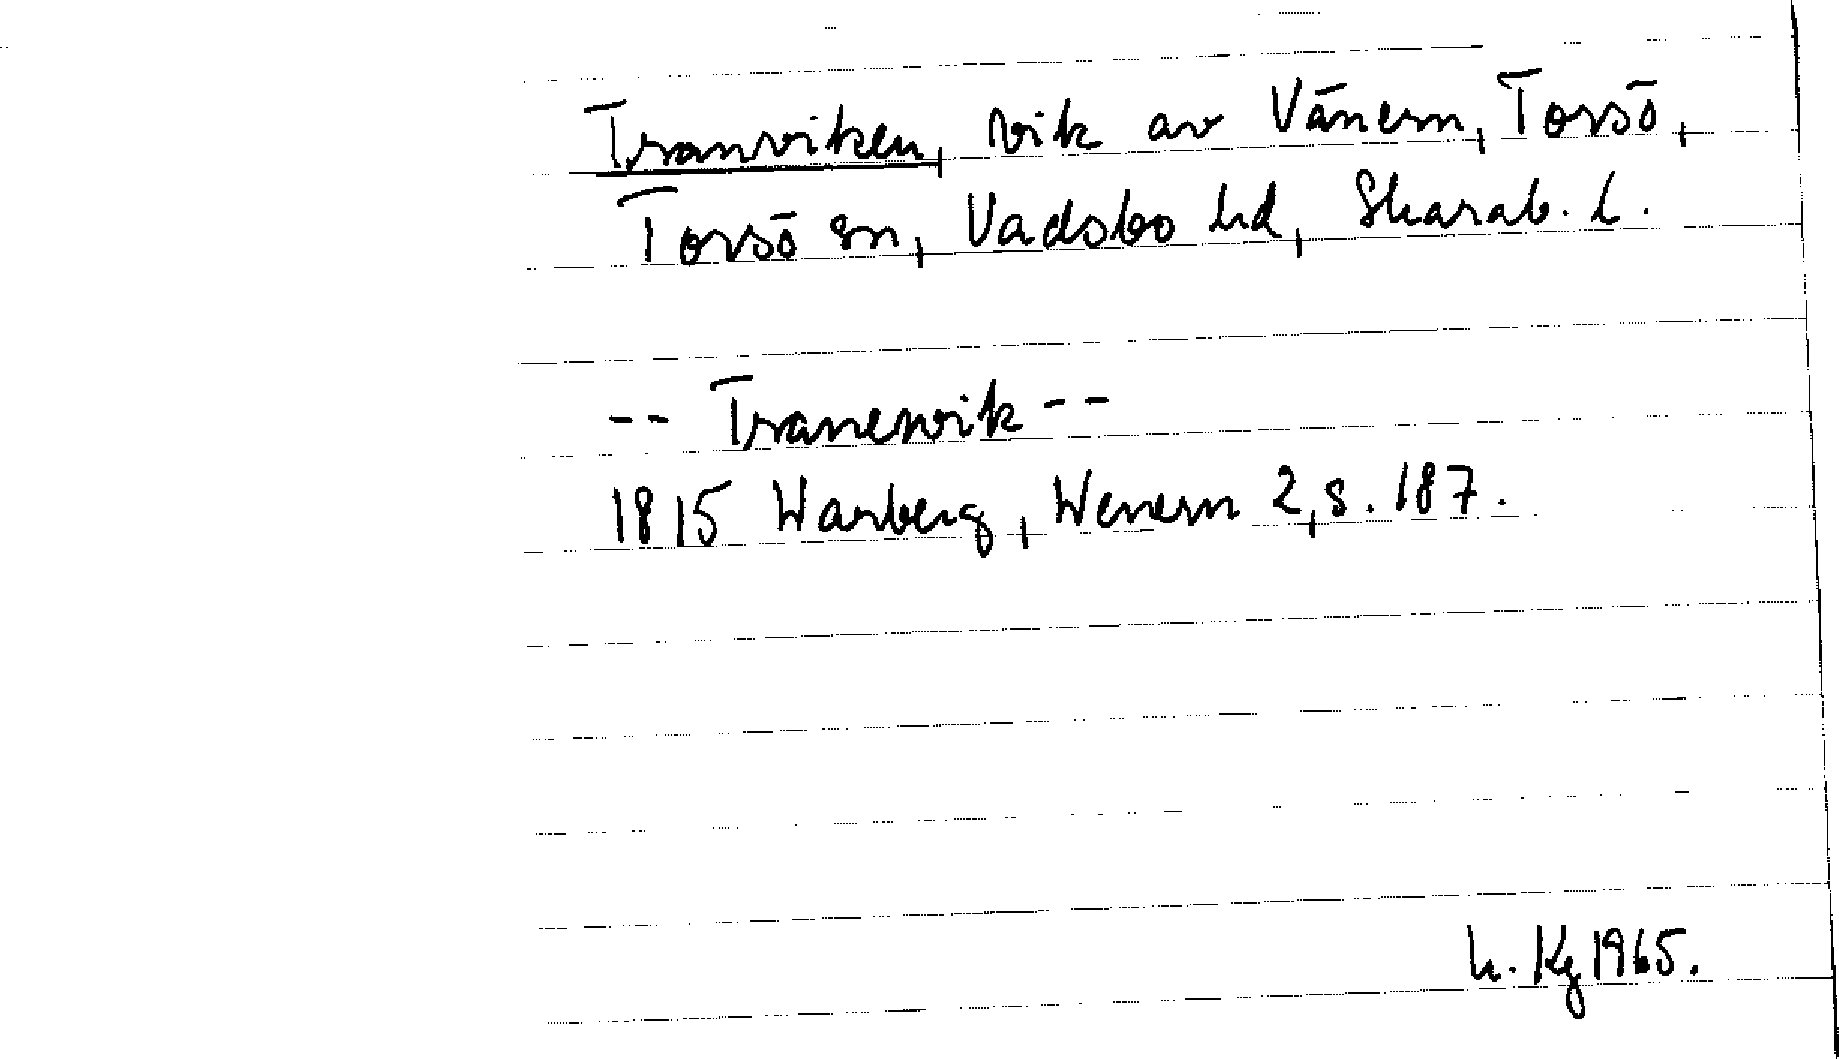 Tranviken, vik av Vänern, Torsö,
Torsö sn, Vadsbo hd, Skarab. l.
-- Tranenvik --
1815 Warberg, Wenern 2, s. 187.
Kg 1965.